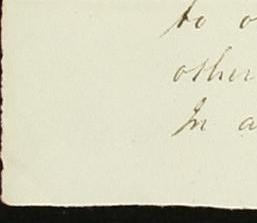 to o
other
In a